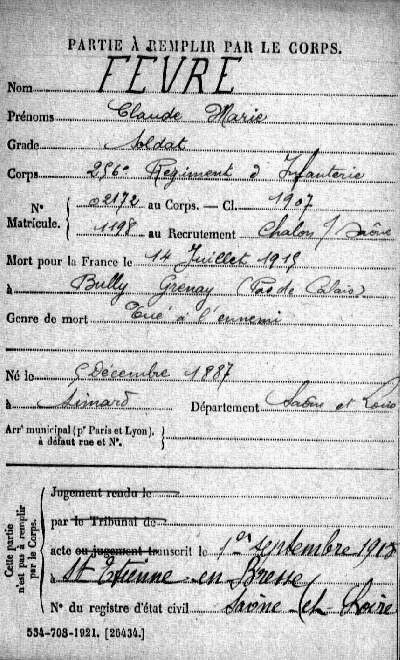 PARTIE À REMPLIR PAR LE CORPS.
Nom FEVRE
Prénoms Claude Marie
Grade Soldat
Corps 256e Régiment d'Infanterie
N° Matricule. { 02172 au Corps. — Cl. 1907
1198 au Recrutement Chalon s/ Saône
Mort pour la France le 14 Juillet 1915
à Bully Grenay (Pas de Calais)
Genre de mort Tué à l'ennemi
Né le 5 Décembre 1887
à Simard Département Saône et Loire
Arrt municipal (pr Paris et Lyon), à défaut rue et N°. {
Cette partie n'est pas à remplir par le Corps.
Jugement rendu le
par le Tribunal de
acte ou jugement transcrit le 1er septembre
à St Etienne en Bresse
N° du registre d'état civil Saône et Loire
534-708-1921. [26434.]